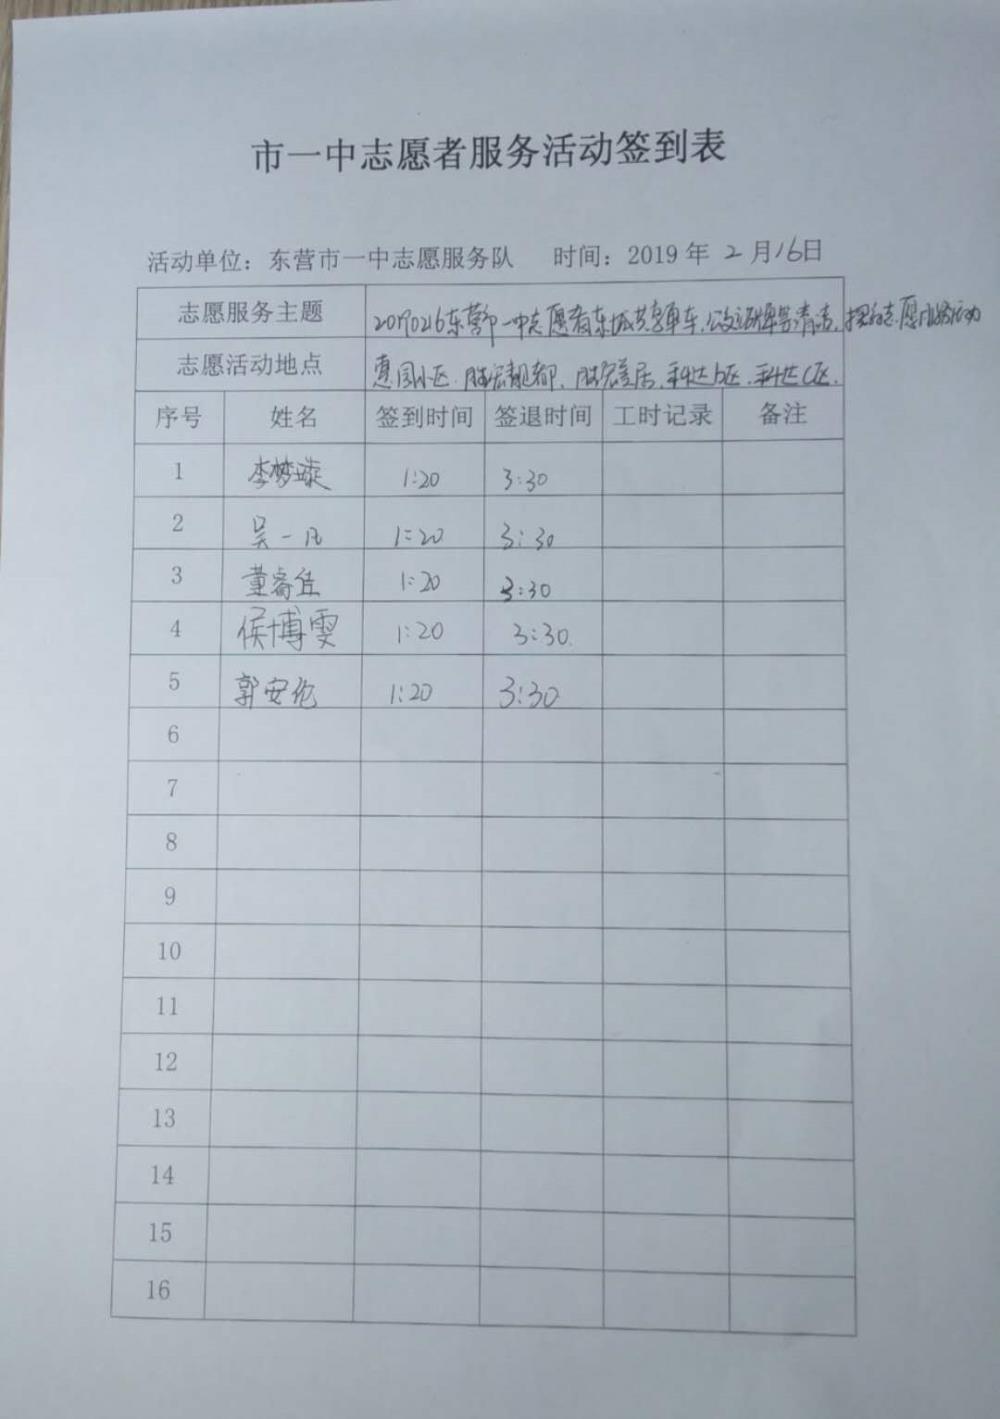 市一中志愿者服务活动签到表
活动单位：东营市一中志愿服务队 时间：2019年2月16日
志愿服务主题 20190216东营市一中志愿者东城共享单车,公交站牌等清洁,摆放志愿服务活动
志愿活动地点 惠园小区.胜宏靓都、胜宏美居、科达b区.科达C区.
序号 姓名 签到时间 签退时间 工时记录 备注
1 李梦璇 1:20 3:30
2 吴一凡 1:20 3:30
3 董睿佳 1:20 3:30
4 侯博雯 1:20 3:30.
5 郭安伦 1:20 3:30
6
7
8
9
10
11
12
13
14
15
16